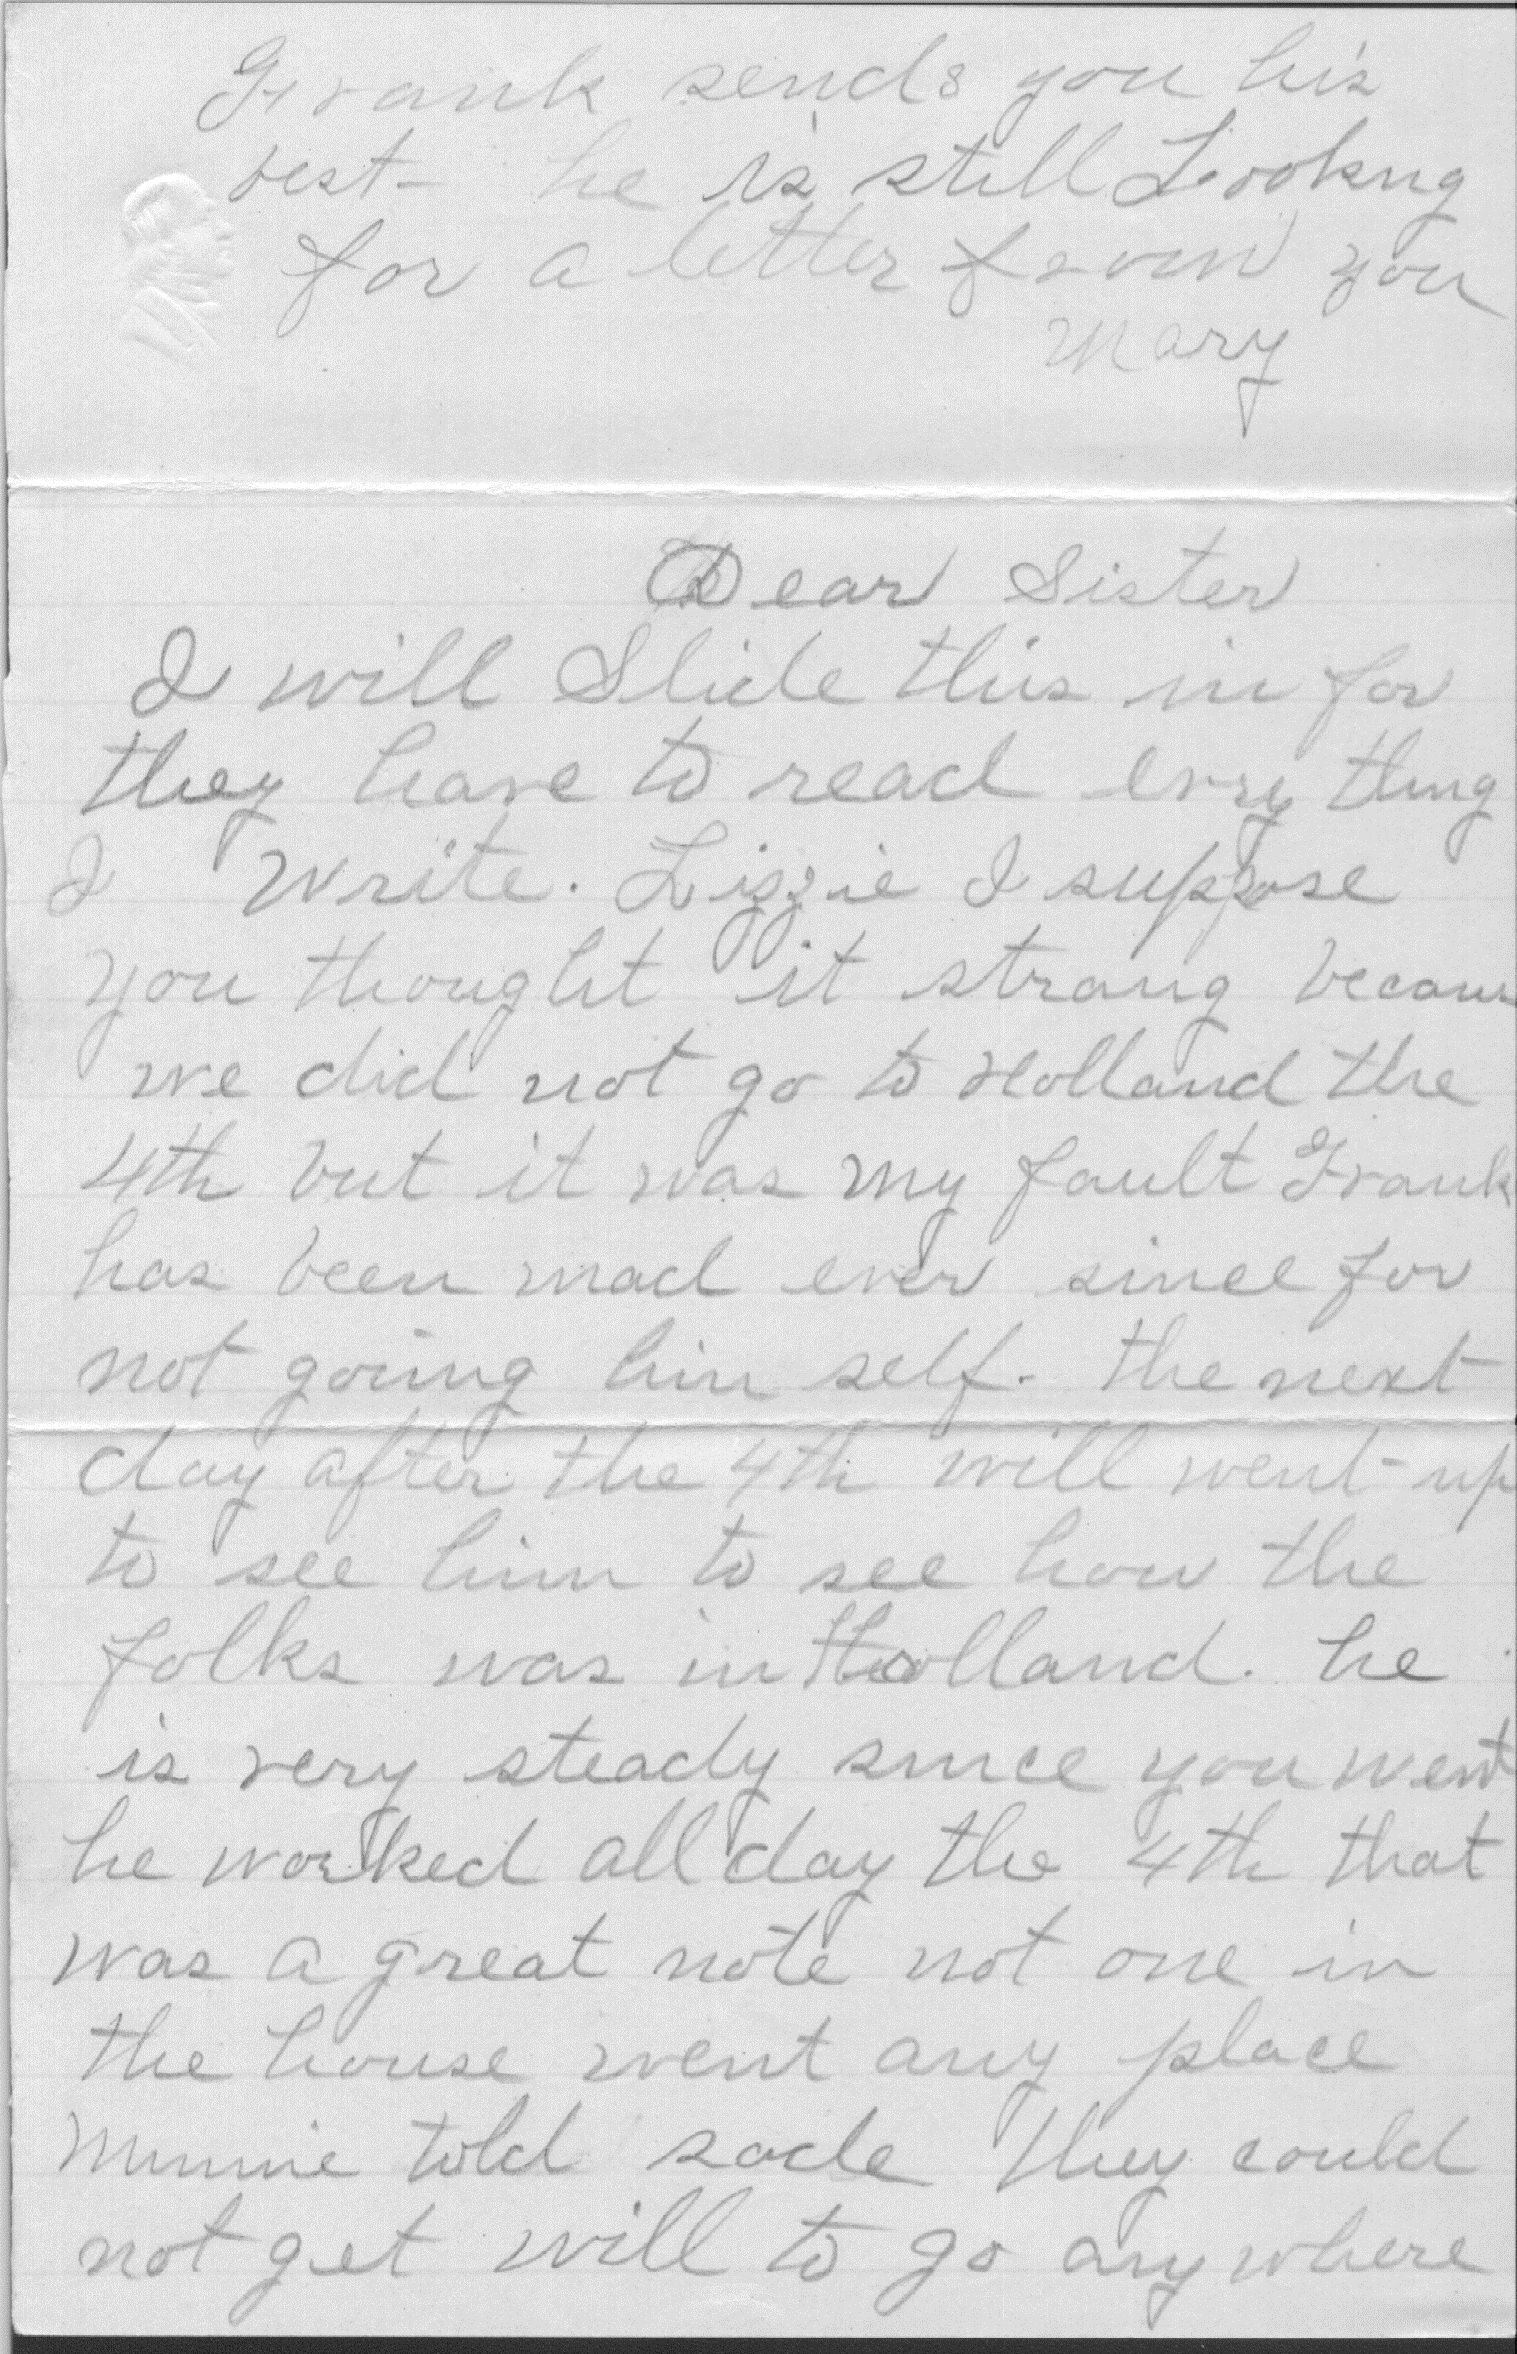 Frank sends you his
best - he is still Lookng
for a letter from you
Mary
Dear Sister
I will Slide this in for
they have to read evry thing
I write. Lizzie I suppose
you thought it strang becaus
we did not go to Holland the
4th but it was my fault Frank
has been mad ever since for
not going him self. the next
day after the 4th will went up
to see him to see how the
folks was in Holland. he
is very steady since you went
he worked all day the 4th that
was a great note not one in
the house went any place
Minnie told sade they could
not get will to go any where